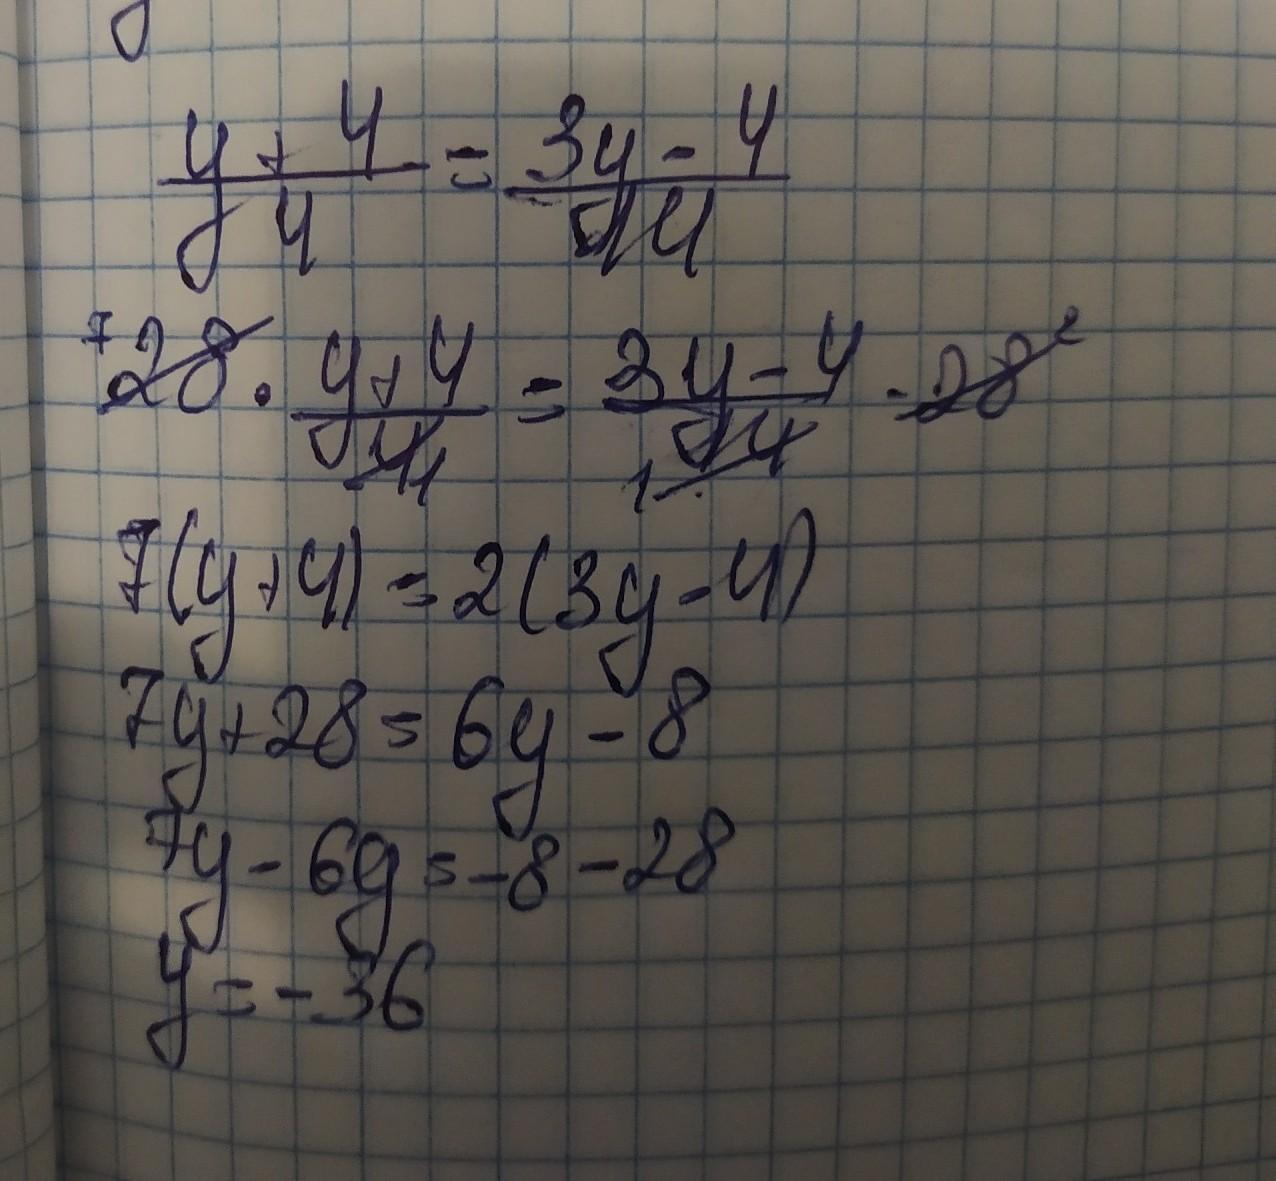 y + 4 / 4 = 3y - 4 / 14
7 28 · y + 4 / 4 1 = 3y - 4 / 14 1 · 28 2
7(y + 4) = 2(3y - 4)
7y + 28 = 6y - 8
7y - 6y = -8 - 28
y = -36